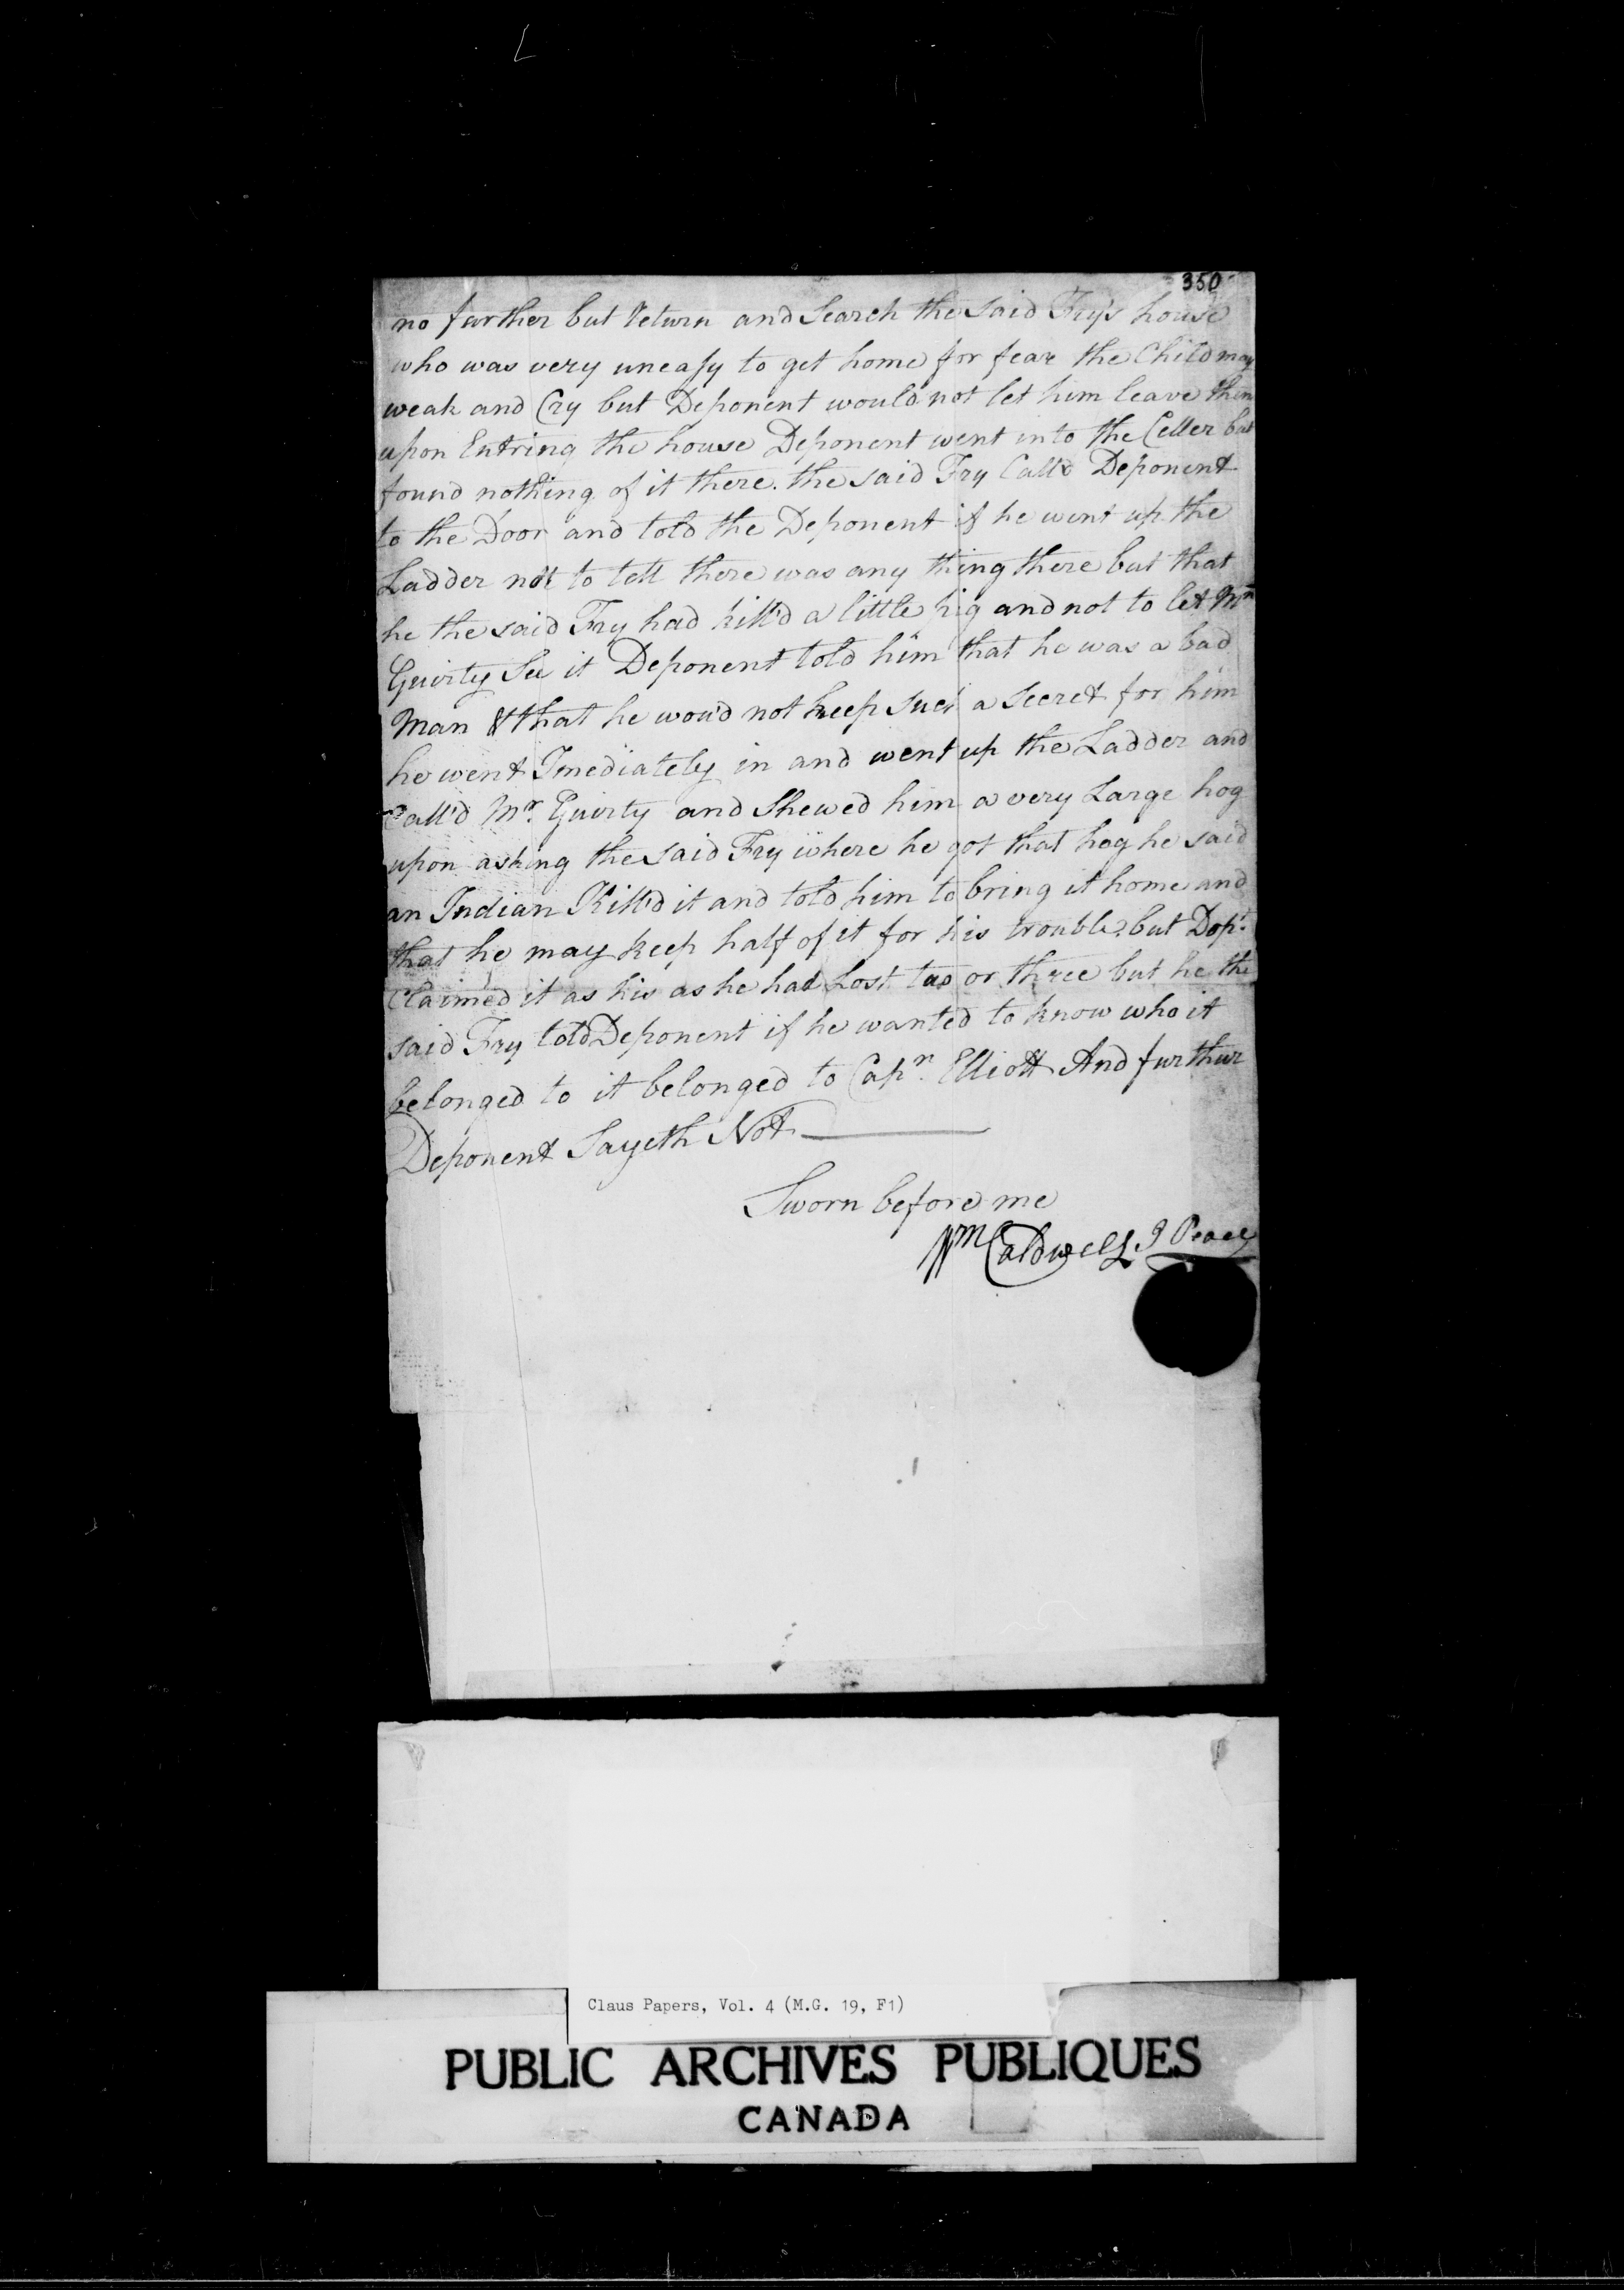 350
no farther but Return and Search the said Fry's house
who was very uneasy to get home for fear the Child may
weak and Cry but Deponent would not let him leave them
upon Entring the house Deponent went into the Celler but
found nothing of it there. the said Fry Call'd Deponent
to the Door and told the Deponent if he went up the
Ladder not to tell there was any thing there but that
he the said Fry had kill'd a little pig and not to let Mr
Guirty See it Deponent told him that he was a bad
Man & that he wou'd not keep such a secret for him
he went Imediately in and went up the Ladder and
Call'd Mr. Guirty and Shewed him a very Large hog
upon asking the said Fry where he got that hog he said
an Indian Kill'd it and told him to bring it home and
that he may keep half of it for his trouble. but Dept.
Claimed it as his as he had Lost two or three but he the
said Fry told Deponent if he wanted to know who it
belonged to it belonged to Capn. Elliott And furthur
Deponent Sayeth Not
Sworn before me
Wm Caldwell J Peace
Claus Papers, Vol. 4 (M.G. 19, F1)
PUBLIC ARCHIVES PUBLIQUES
CANADA